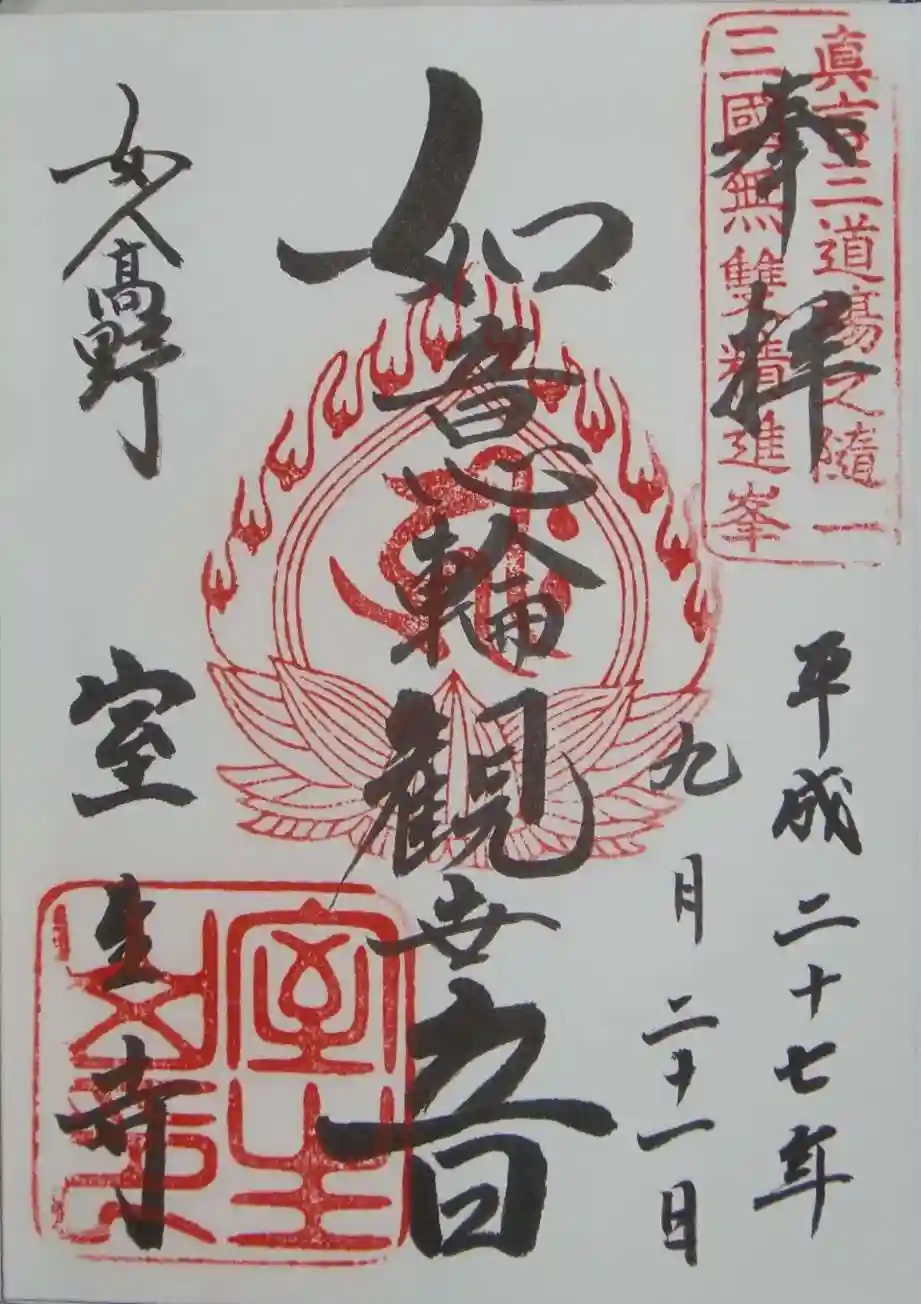 奉拝
真言三道場之隨一
三國無雙精進峯
平成二十七年
九月二十一日
如意輪観世音
女人高野
室生寺
室生